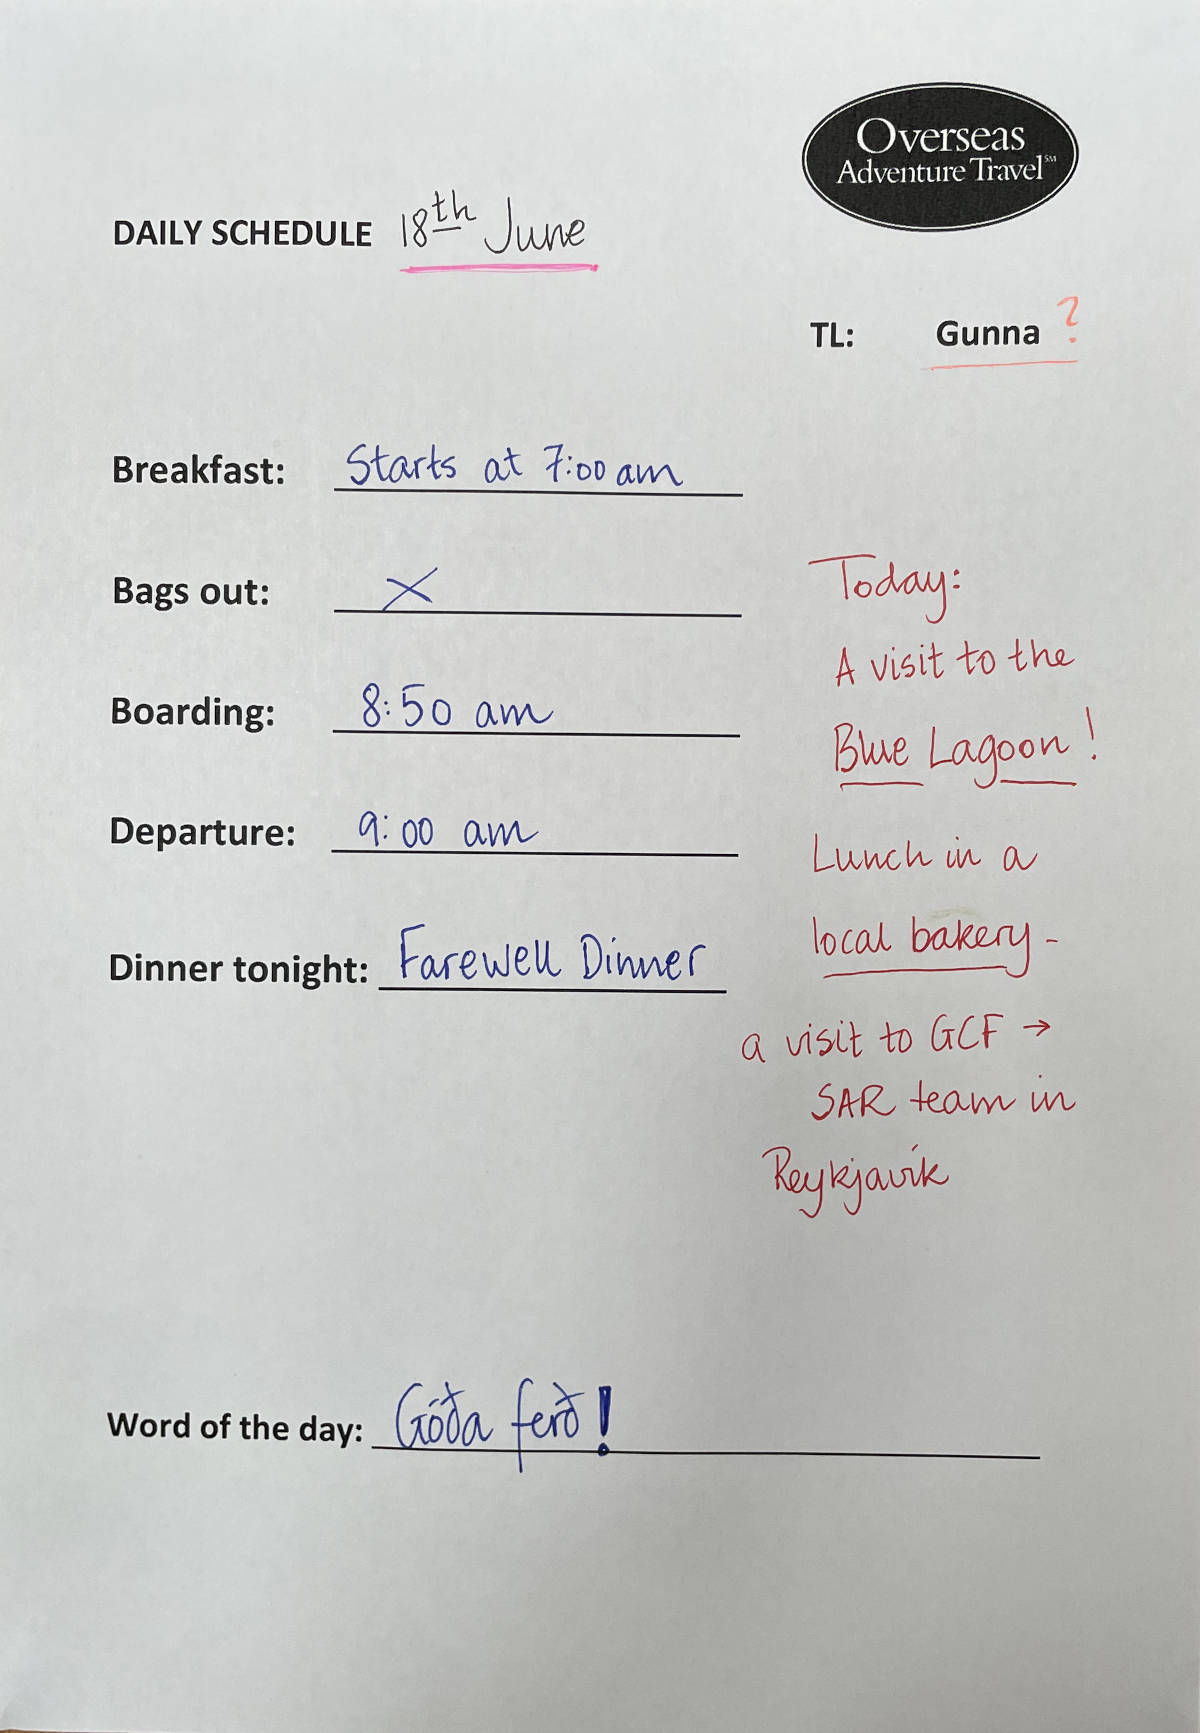 Overseas
Adventure Travel℠
DAILY SCHEDULE 18th June
TL: Gunna ?
Breakfast: Starts at 7:00 am
Bags out: X
Boarding: 8:50 am
Departure: 9:00 am
Dinner tonight: Farewell Dinner
Today:
A visit to the
Blue Lagoon!
Lunch in a
local bakery -
a visit to GCF →
SAR team in
Reykjavík
Word of the day: Góða ferð!